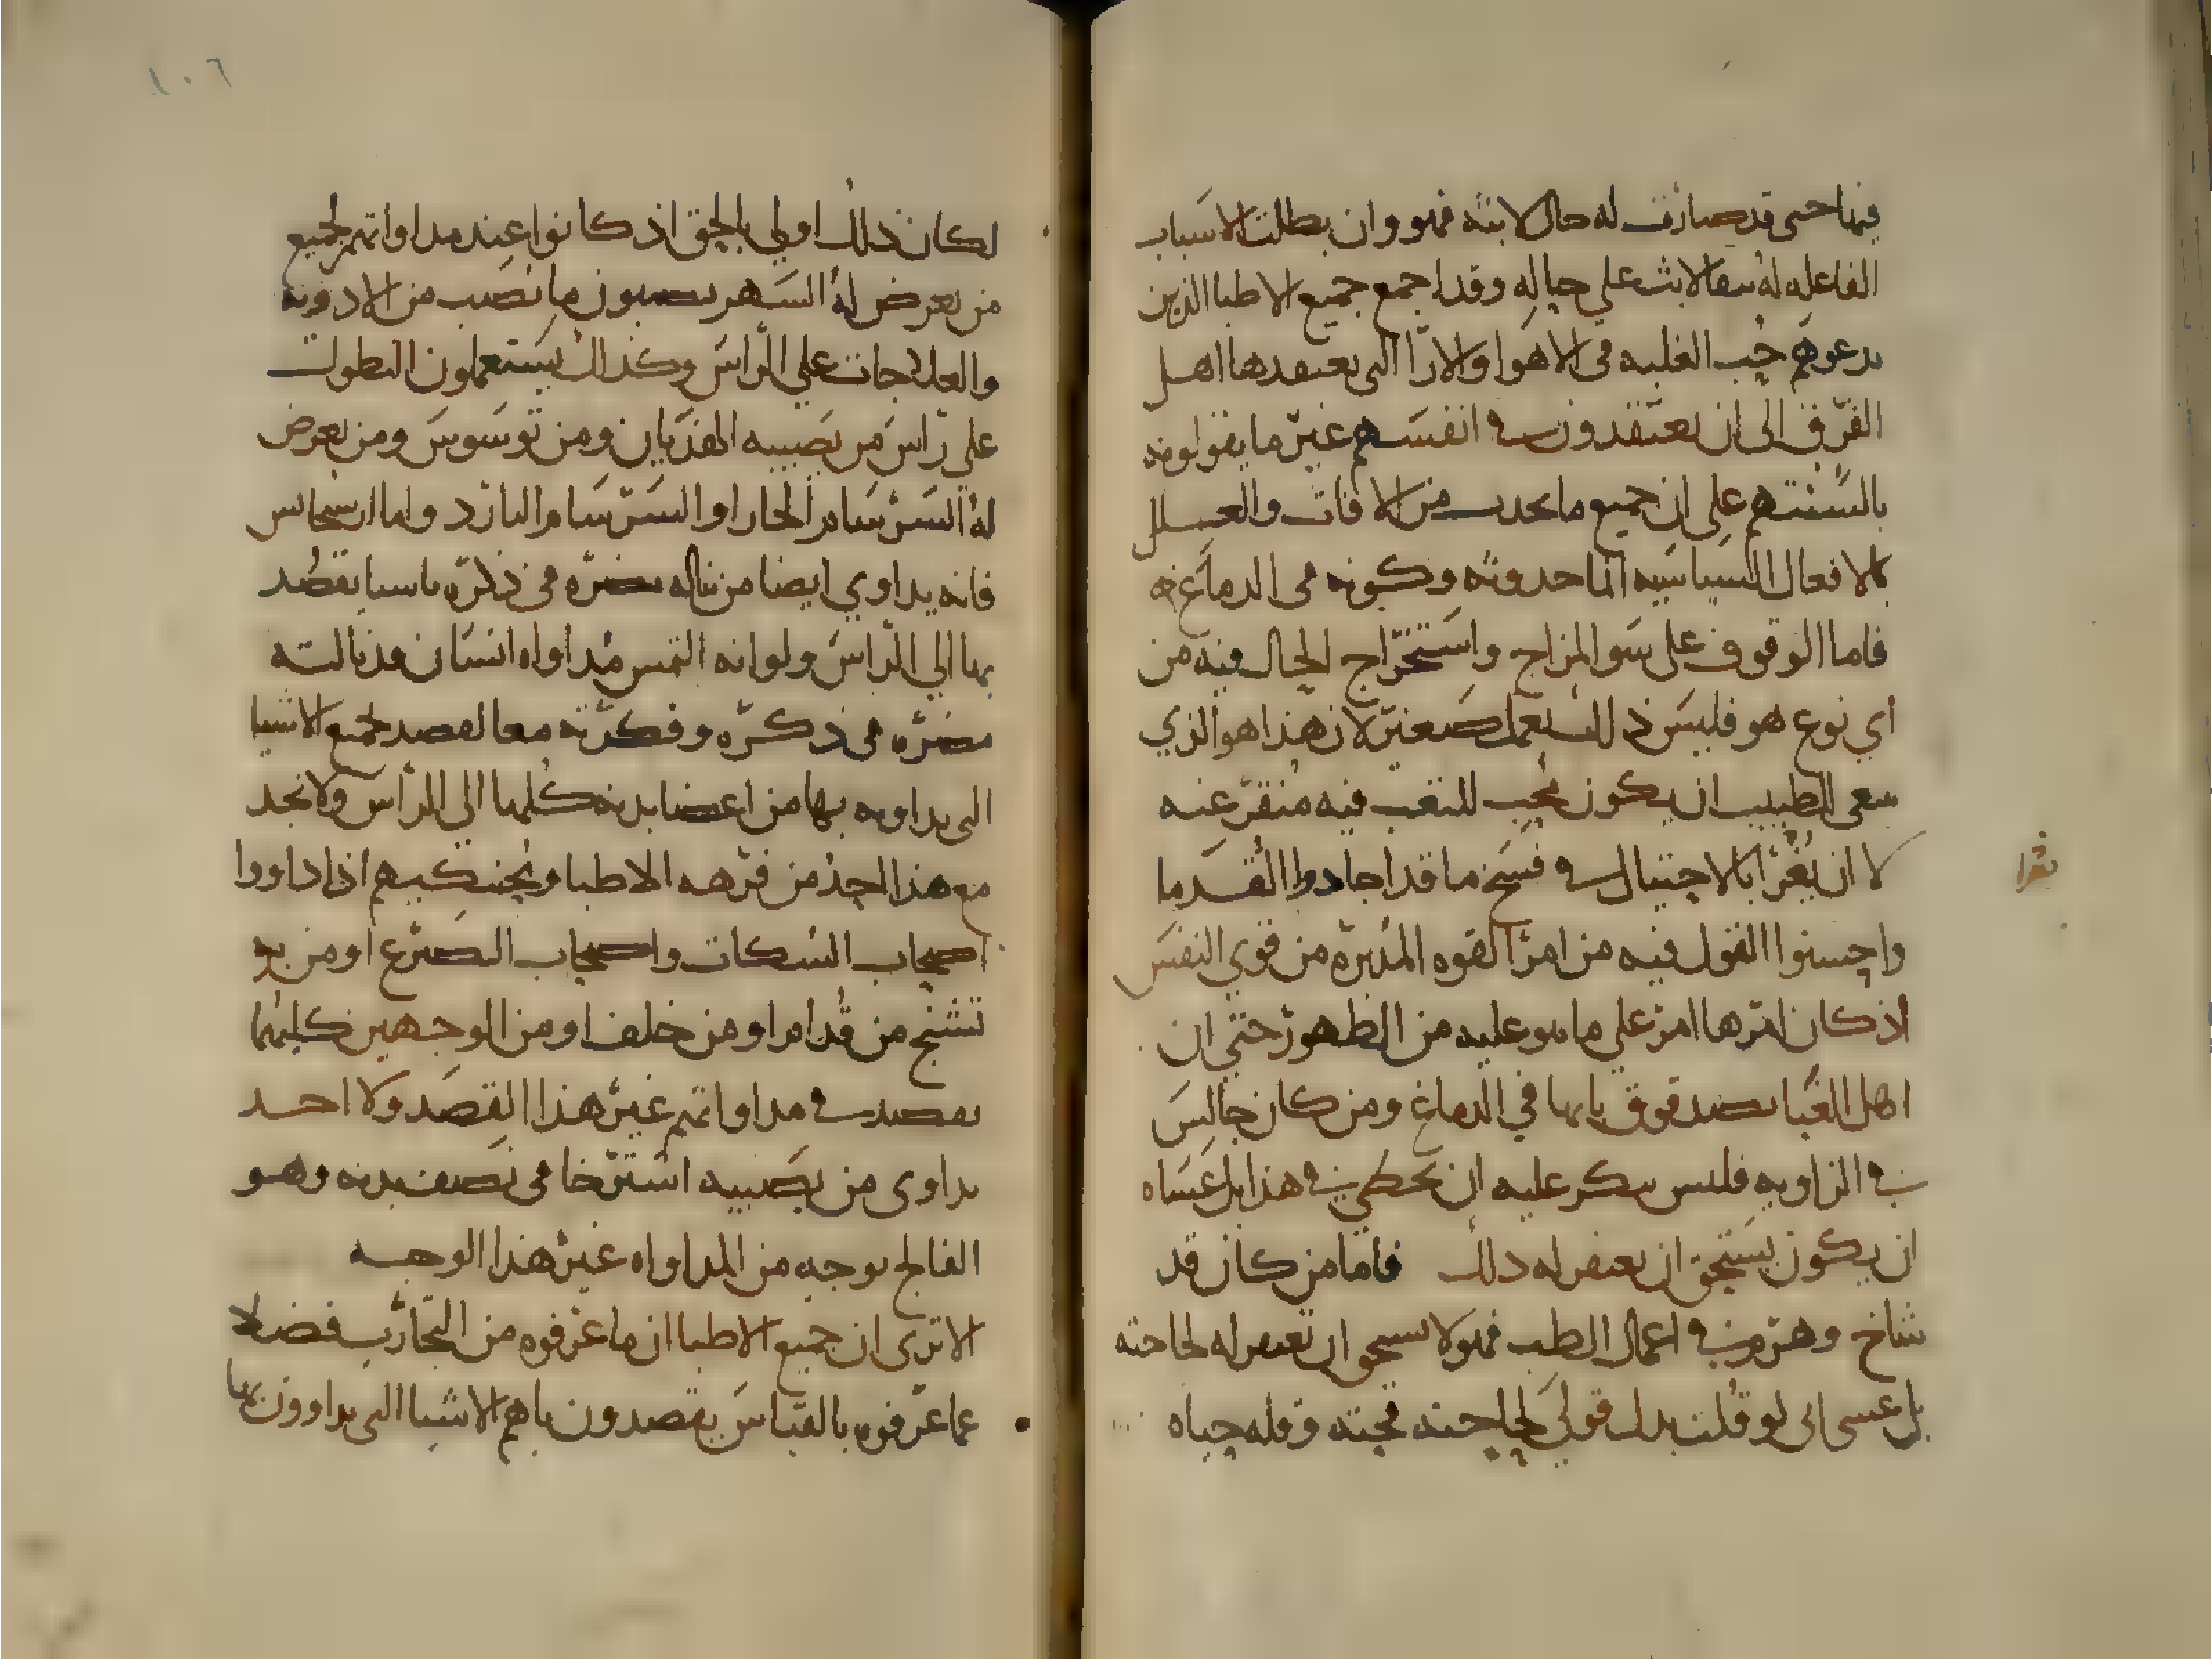 فيها حتى قد صارت له حال لابثه فهو وان بطلت الاسباب
الفاعله له يبقا لابث علي حاله وقد اجمع جميع الاطبا الذين
يدعوهم حب الغلبه في الاهوا والارا التي يعتقدها اهل
الفرق الى ان يعتقدون في انفسهم غير ما يقولونه
بالسنتهم على ان جميع ما يحدث من الافات والعلل
بالافعال السياسيه انما حدوثه وكونه في الدماغ
فاما الوقوف على سو المزاج واستخراج الحال فيه من
اي نوع هو فليس ذلك بعمل صغير لان هذا هو الذي
ينبغي للطبيب ان يكون محب للتعب فيه منقر عنه
لا ان يغرا بالاحتيال في فسخ ما قد اجادوا القدما
يغرا
واحسنوا القول فيه من امر القوه المدبره من قوي النفس
اذ كان امرها امر على ما هو عليه من الظهور حتي ان
اهل الغبا يصدقون بانها في الدماغ ومن كان جالس
في الزاويه فليس ينكر عليه ان يخطي في هذا بل عساه
ان يكون يستحق ان يغفر له ذلك فاما من كان قد
شاخ وهرم في اعمال الطب فهو لا يستحق ان يغفر له لجاجته
بل عسى اني لو قلت بدل قولي لجاجته قحته وقله حياه
١٠٦
لكان ذلك اولي بالحق اذ كانوا عند مداواتهم لجميع
من يعرض له السهر يصبون ما يصب من الادويه
والعلاجات علي الراس وكذلك يستعملون النطولات
علي راس من يصيبه الهذيان ومن توسوس ومن يعرض
له السرسام الحار او السرسام البارد واما ارسجانس
فانه يداوي ايضا من ناله مضره في ذكره باشيا يقصد
بها الي الراس ولو انه التمس مداواه انسان قد نالته
مضره في ذكره وفكرته معا لقصد بجميع الاشيا
التي يداويه بها من اعضا بدنه كلها الي الراس ولا نجد
مع هذا احد من فرهه الاطبا ومحنكيهم اذا داووا
اصحاب السكات واصحاب الصرع او من به
تشنج من قدام او من خلف او من الوجهين كليهما
يقصد في مداواتهم غير هذا القصد ولا احد
يداوى من يصيبه استرخا في نصف بدنه وهو
الفالج بوجه من المداواه غير هذا الوجه
الا ترى ان جميع الاطبا ان ما عرفوه من التجارب فضلا
عما عرفوه بالقياس يقصدون باهم الاشيا التى يداوون بها